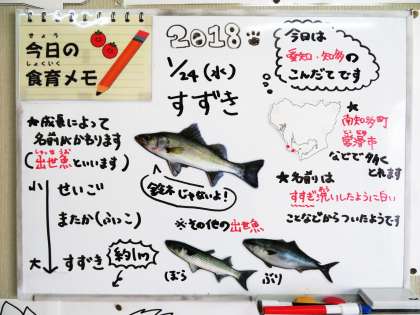 きょう
今日の
しょくいく
食育メモ
2018
1/24(水)
すずき
今日は
愛知・知多の
こんだてです
★成長によって
名前がかわります
しゅっせ うお
(出世魚といいます)
小
せいご
またか(ふっこ)
大
すずき
約1m
鈴木じゃないよ!
※その他の出世魚
ぼら
ぶり
★
南知多町
常滑市
などで多く
とれます
★名前は
すすぎ洗いしたように白い
ことなどからついたようです